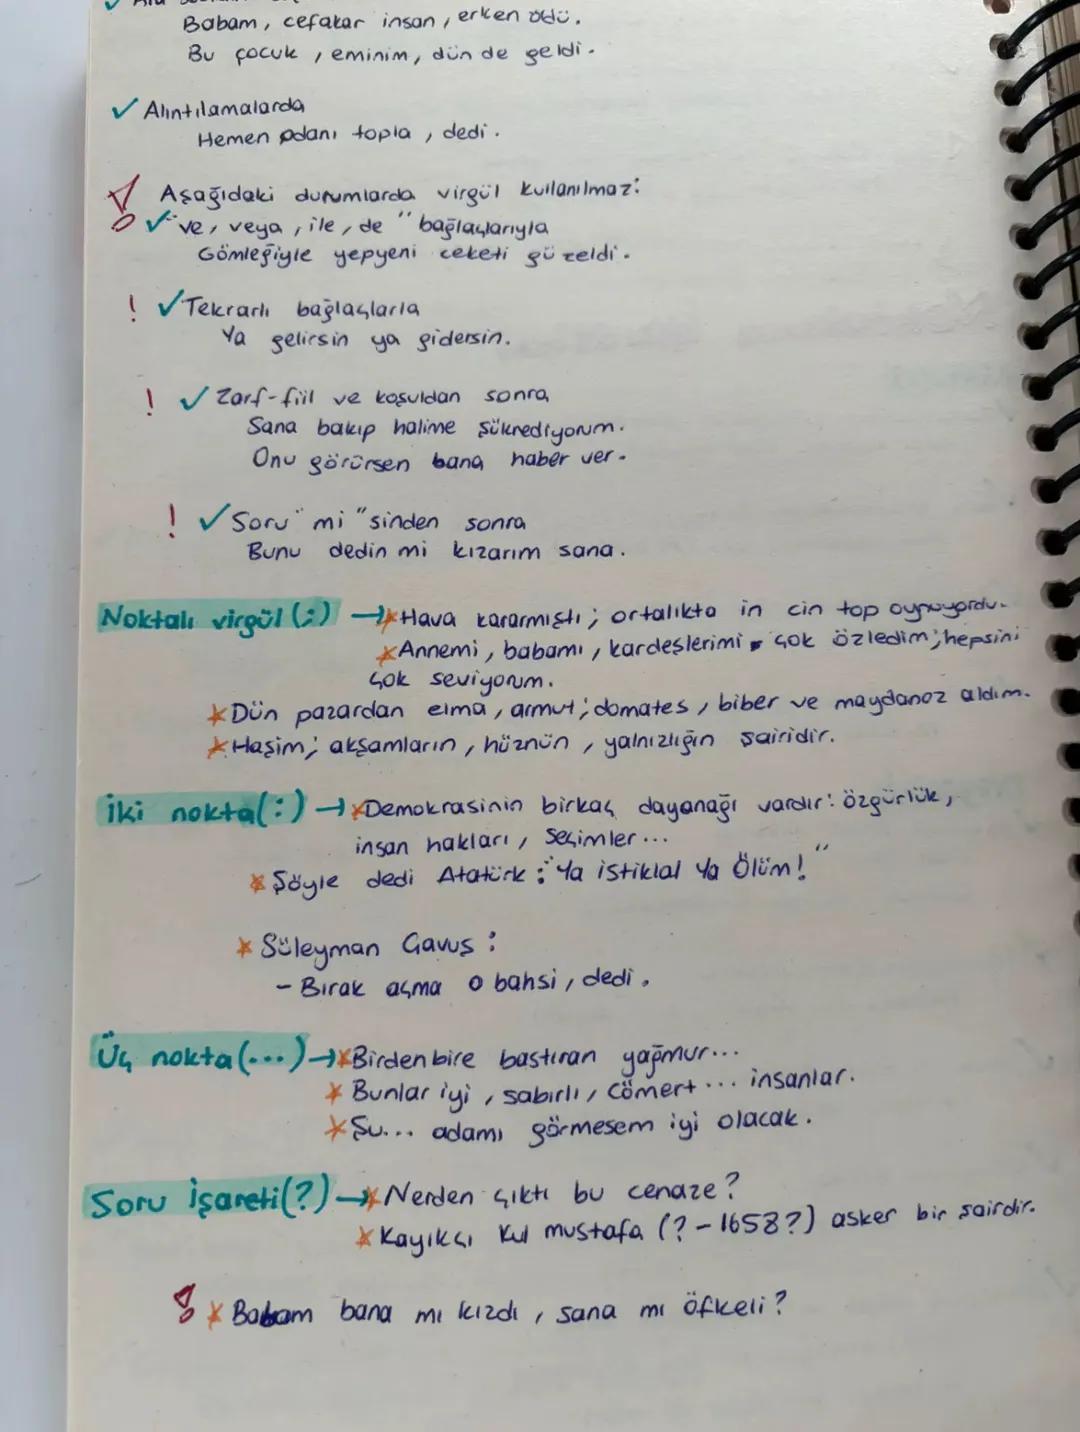 Babam, cefakar insan, erken öldü.
Bu çocuk, eminim, dün de geldi.
✓ Alıntılamalarda
Hemen odanı topla, dedi.
! Aşağıdaki durumlarda virgül kullanılmaz:
✓ "ve, veya, ile, de" bağlaçlarıyla
Gömleğiyle yepyeni ceketi güzeldi.
! ✓ Tekrarlı bağlaçlarla
Ya gelirsin ya gidersin.
! ✓ Zarf-fiil ve koşuldan sonra
Sana bakıp halime şükrediyorum.
Onu görürsen bana haber ver.
! ✓ Soru "mi" sinden sonra
Bunu dedin mi kızarım sana.
Noktalı virgül (;) → * Hava kararmıştı; ortalıkta in cin top oynuyordu.
* Annemi, babamı, kardeşlerimi çok özledim; hepsini
çok seviyorum.
* Dün pazardan elma, armut; domates, biber ve maydanoz aldım.
* Haşim; akşamların, hüznün, yalnızlığın şairidir.
İki nokta (:) → * Demokrasinin birkaç dayanağı vardır: özgürlük,
insan hakları, seçimler...
* Şöyle dedi Atatürk: "Ya istiklal Ya Ölüm!"
* Süleyman Çavuş:
- Bırak açma o bahsi, dedi.
Üç nokta (...) → * Birdenbire bastıran yağmur...
* Bunlar iyi, sabırlı, cömert ... insanlar.
* Şu... adamı görmesem iyi olacak.
Soru işareti (?) → * Nerden çıktı bu cenaze?
* Kayıkçı Kul mustafa (? - 1658?) asker bir şairdir.
! * Babam bana mı kızdı, sana mı öfkeli?